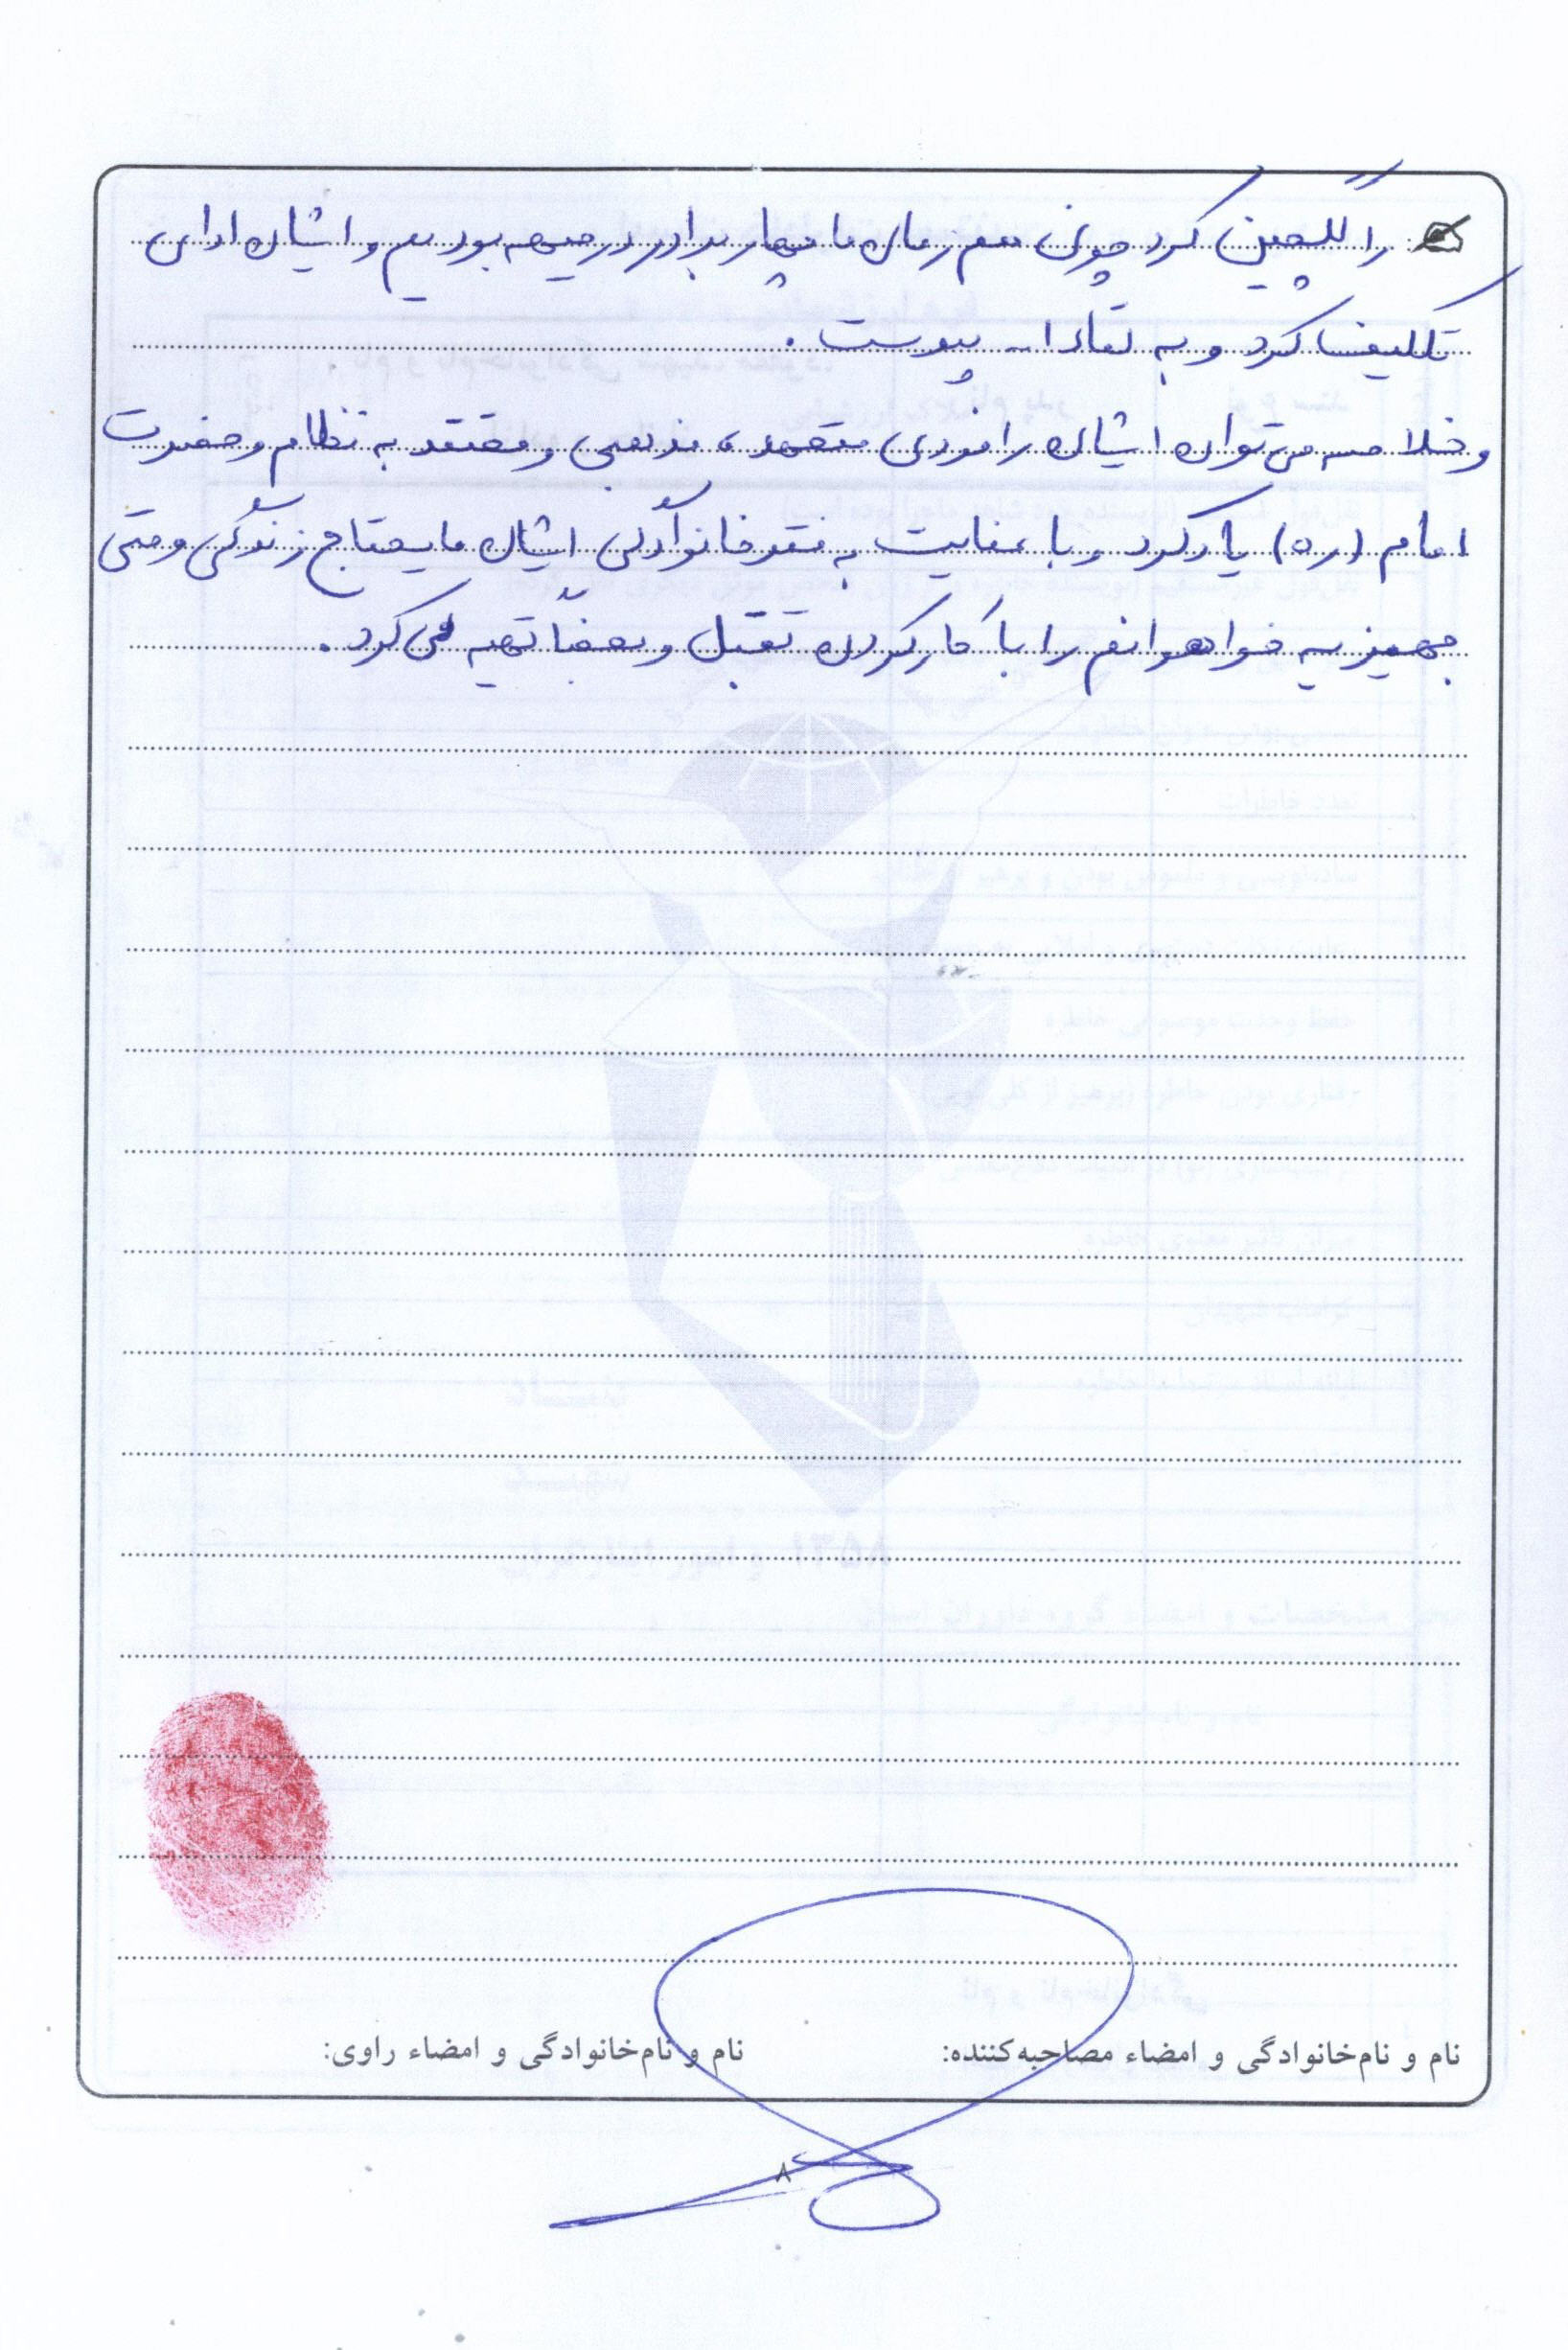 را گلچین کرد چون هم زمان ما چهار برادر در جبهه بودیم و ایشان ادای
تکلیف کرد و به لقاء ا... پیوست .
و خلاصه می توان ایشان را فردی متعهد ، مذهبی و معتقد به نظام و حضرت
امام (ره) یاد کرد و با عنایت به فقر خانوادگی ایشان مایحتاج زندگی و حتی
جهیزیه خواهرانم را با کار کردن تقبل و بعضاً تهیه می کرد .
نام و نام‌خانوادگی و امضاء مصاحبه‌کننده: نام و نام‌خانوادگی و امضاء راوی:
۸